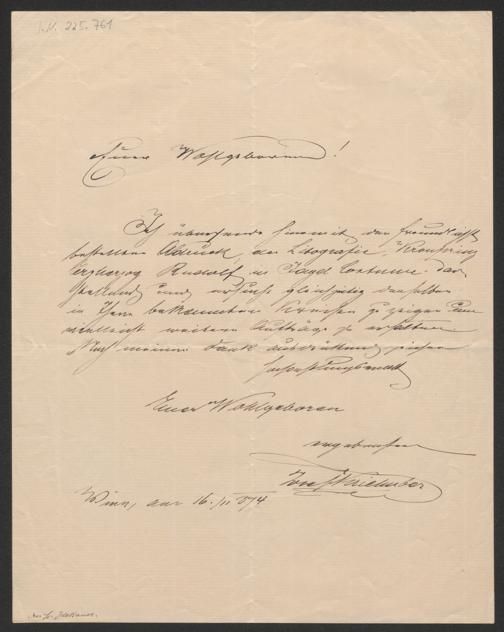 I.N. 225.761
Euer Wohlgeboren!
Ich übersende hiemit den freundlichst
bestellten Abdruck, der Litografie, Kronprinz
Erzherzog Rudolf in Jagd Costume dar
stellend und ersuche gleichzeitig denselben
in Ihren bekannten Kreisen zu zeigen um
vielleicht weitere Aufträge zu erhalten.
Nebst meinen Dank ausdrückend zeichne
hochachtungsvoll
Euer Wohlgeboren
ergebenster
Josef Kriehuber
Wien, am 16./II 874